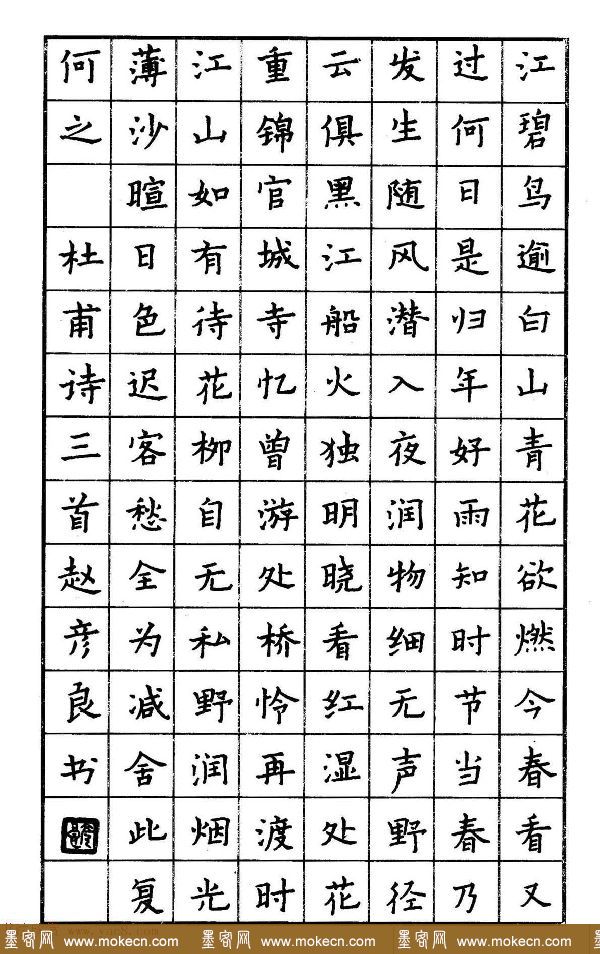 江碧鸟逾白山青花欲燃今春看又
过何日是归年好雨知时节当春乃
发生随风潜入夜润物细无声野径
云俱黑江船火独明晓看红湿处花
重锦官城寺忆曾游处桥怜再渡时
江山如有待花柳自无私野润烟光
薄沙暄日色迟客愁全为减舍此复
何之 杜甫诗三首赵彦良书
墨客网 www.mokecn.com 墨客网 www.mokecn.com 墨客网 www.mokecn.com